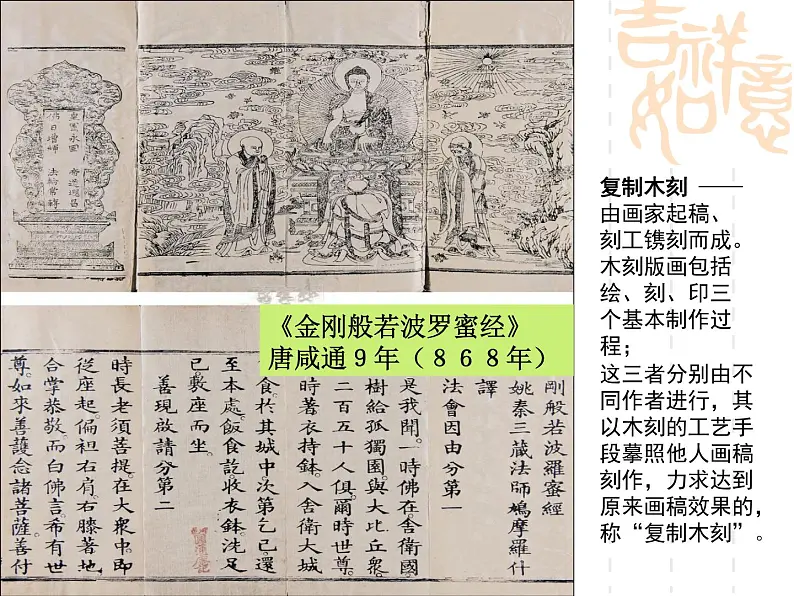 吉祥
如意
皇圖永固 帝道遐昌
佛日增輝
《金刚般若波罗蜜经》
唐咸通9年（868年）
剛般若波羅蜜經
姚秦三藏法師鳩摩羅什
譯
法會因由分第一
是我聞。一時佛在舍衛國
樹給孤獨園與大比丘衆
二百五十人俱。爾時世尊
時著衣持鉢。入舍衛大城
食。於其城中。次第乞已。還
至本處。飯食訖。收衣鉢。洗足
已。敷座而坐。
善現啟請分第二
時長老須菩提。在大衆中。即
從座起。偏袒右肩。右膝著地
合掌恭敬。而白佛言。希有世
尊。如來善護念諸菩薩。善付
复制木刻 ——
由画家起稿、
刻工镌刻而成。
木刻版画包括
绘、刻、印三
个基本制作过
程；
这三者分别由不
同作者进行，其
以木刻的工艺手
段摹照他人画稿
刻作，力求达到
原来画稿效果的，
称“复制木刻”。